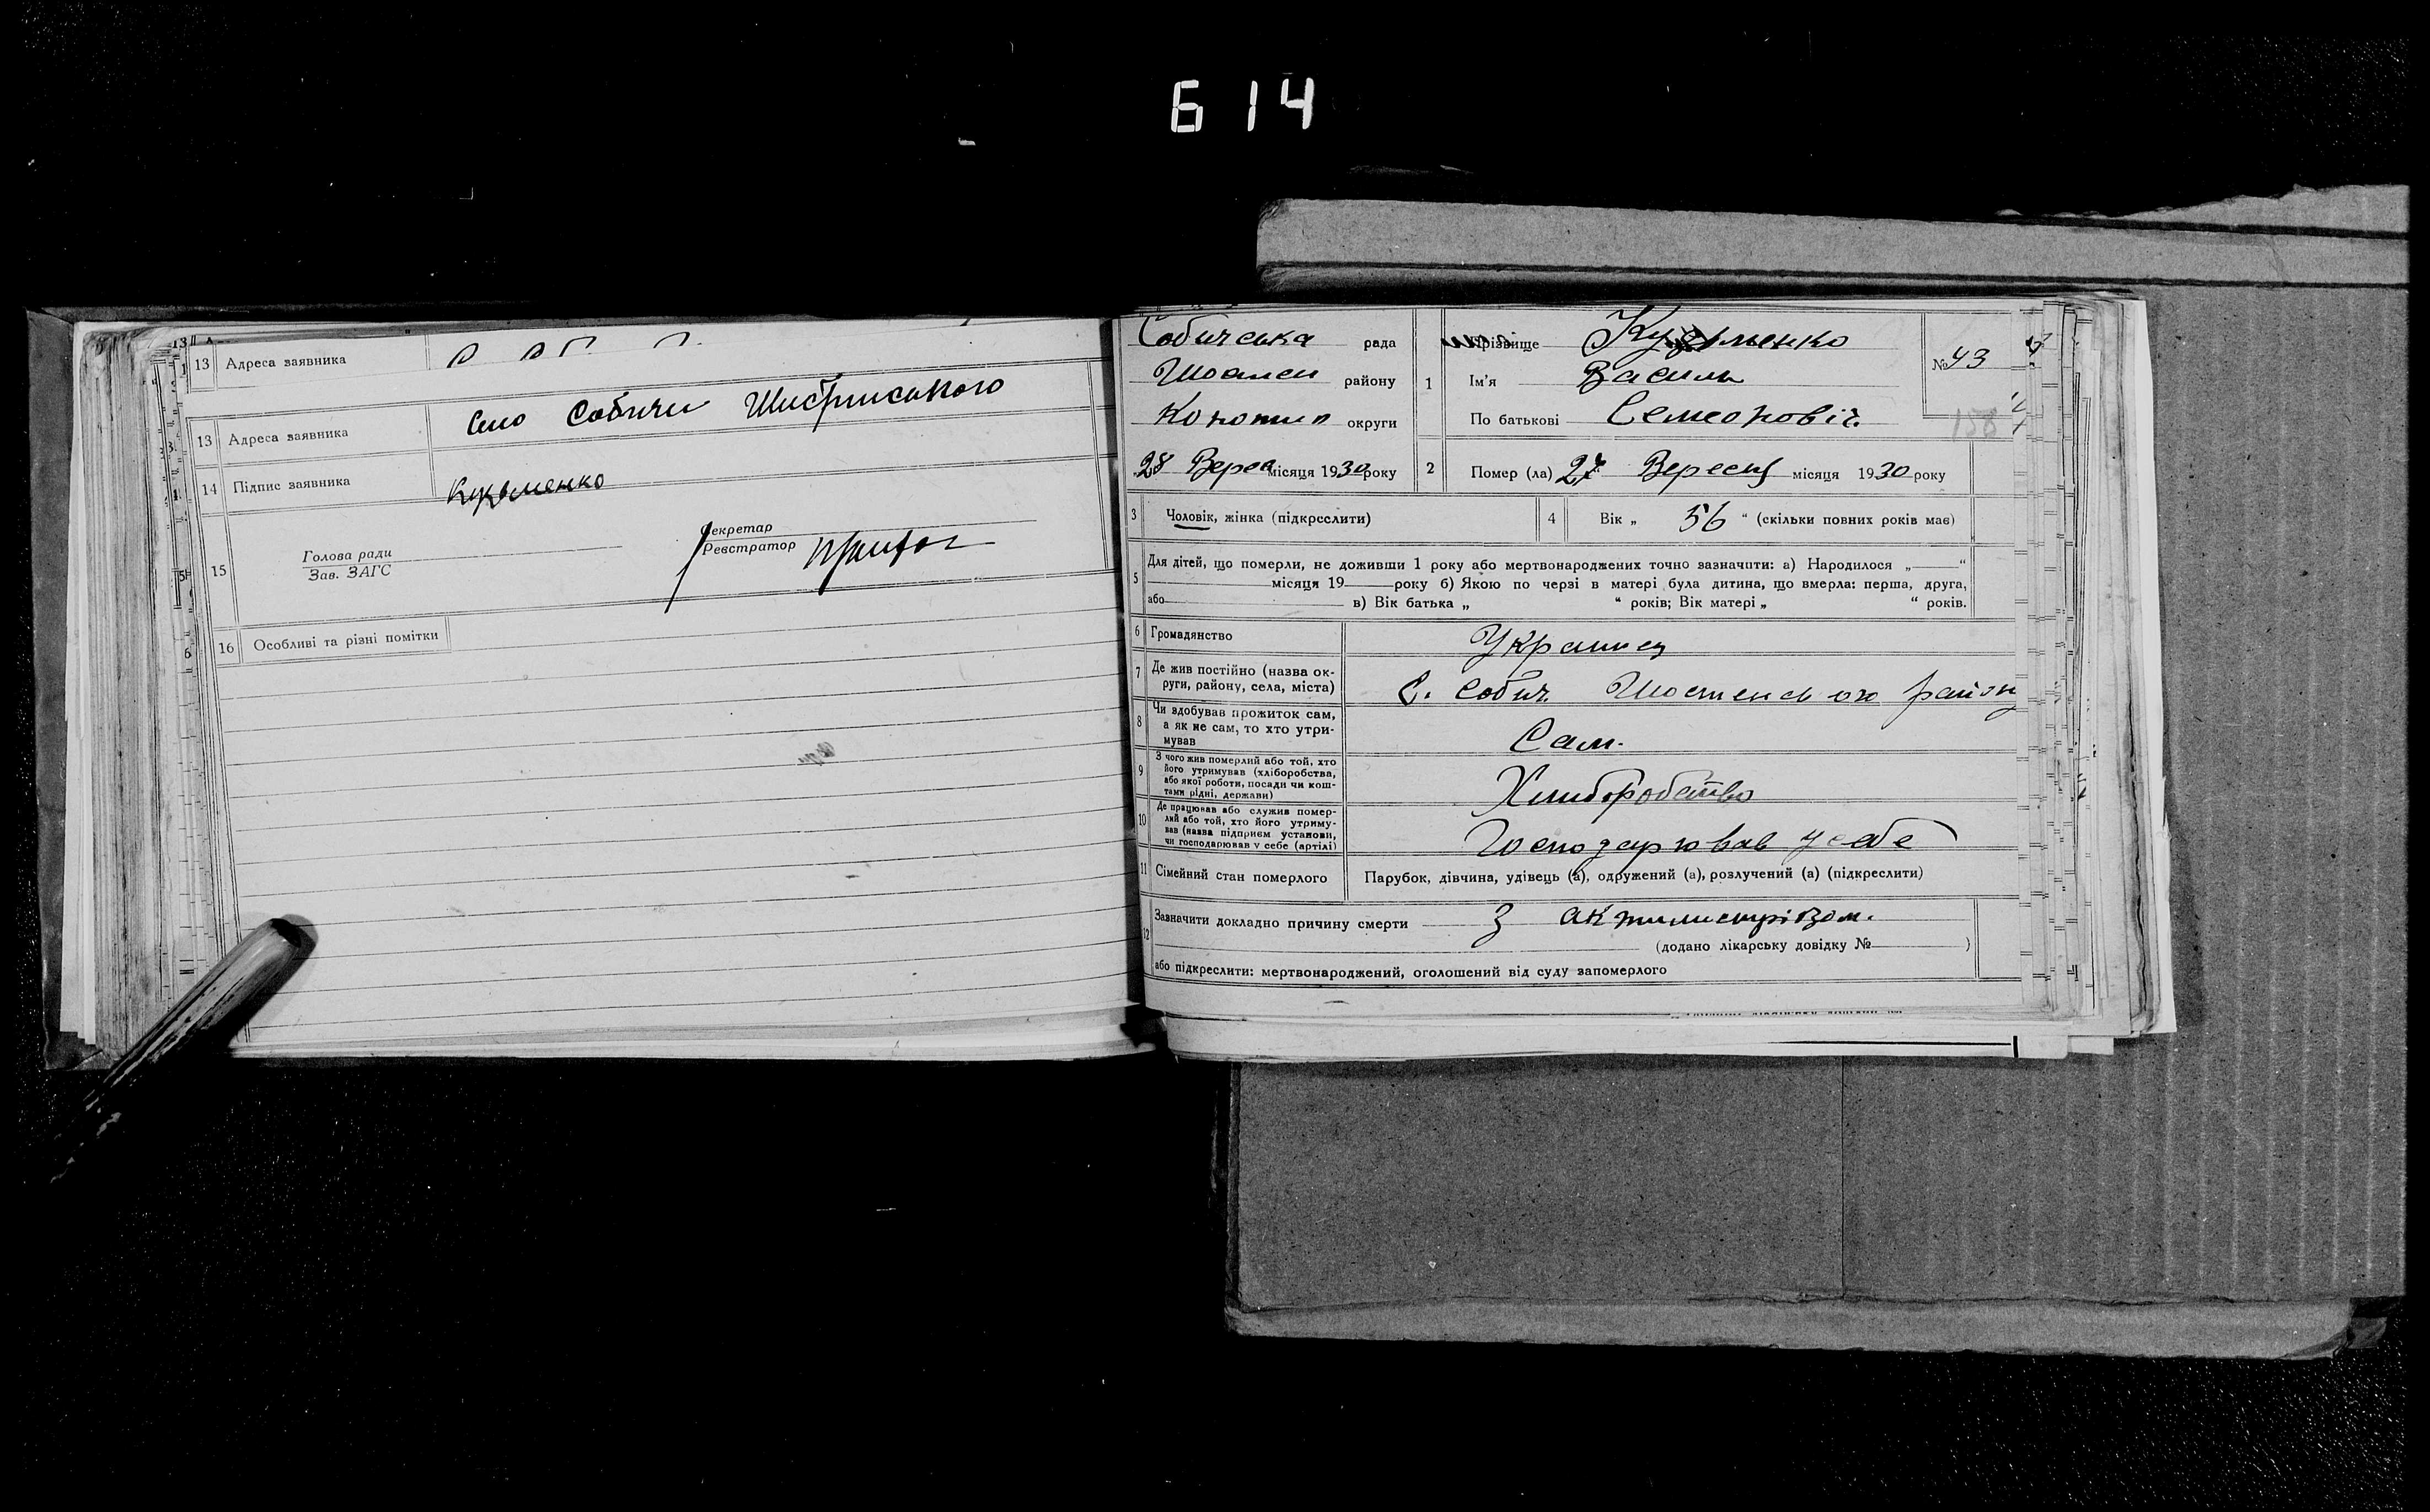 614
13 Адреса заявника
13 Адреса заявника Село Собичи
14 Підпис заявника Кузьменко
15 Голова ради
Зав. ЗАГС
Секретар
Реєстратор
16 Особливі та різні помітки
Собичська рада
району
Конотоп округи
28 Верес місяця 1930 року
1 Прізвище Кузьменко
Ім'я Василь
По батькові Семеновіч
№ 43
158
2 Помер (ла) 27 Вересня місяця 1930 року
3 Чоловік, жінка (підкреслити)
4 Вік „ 56 “ (скільки повних років має)
5 Для дітей, що померли, не доживши 1 року або мертвонароджених точно зазначити: а) Народилося „ “
місяця 19 року б) Якою по черзі в матері була дитина, що вмерла: перша, друга,
або в) Вік батька „ “ років; Вік матері „ “ років.
6 Громадянство Українец
7 Де жив постійно (назва ок-
руги, району, села, міста) С. Собич Шостенського району
8 Чи здобував прожиток сам,
а як не сам, то хто утри-
мував Сам.
9 З чого жив померлий або той, хто
його утримував (хліборобства,
або якої роботи, посади чи кош-
тами рідні, держави) Хлиборобство
10 Де працював або служив помер-
лий або той, хто його утриму-
вав (назва підприєм установи,
чи господарював у себе (артілі) Господарював у себе
11 Сімейний стан померлого Парубок, дівчина, удівець (а), одружений (а), розлучений (а) (підкреслити)
12 Зазначити докладно причину смерти З
(додано лікарську довідку № )
або підкреслити: мертвонароджений, оголошений від суду запомерлого